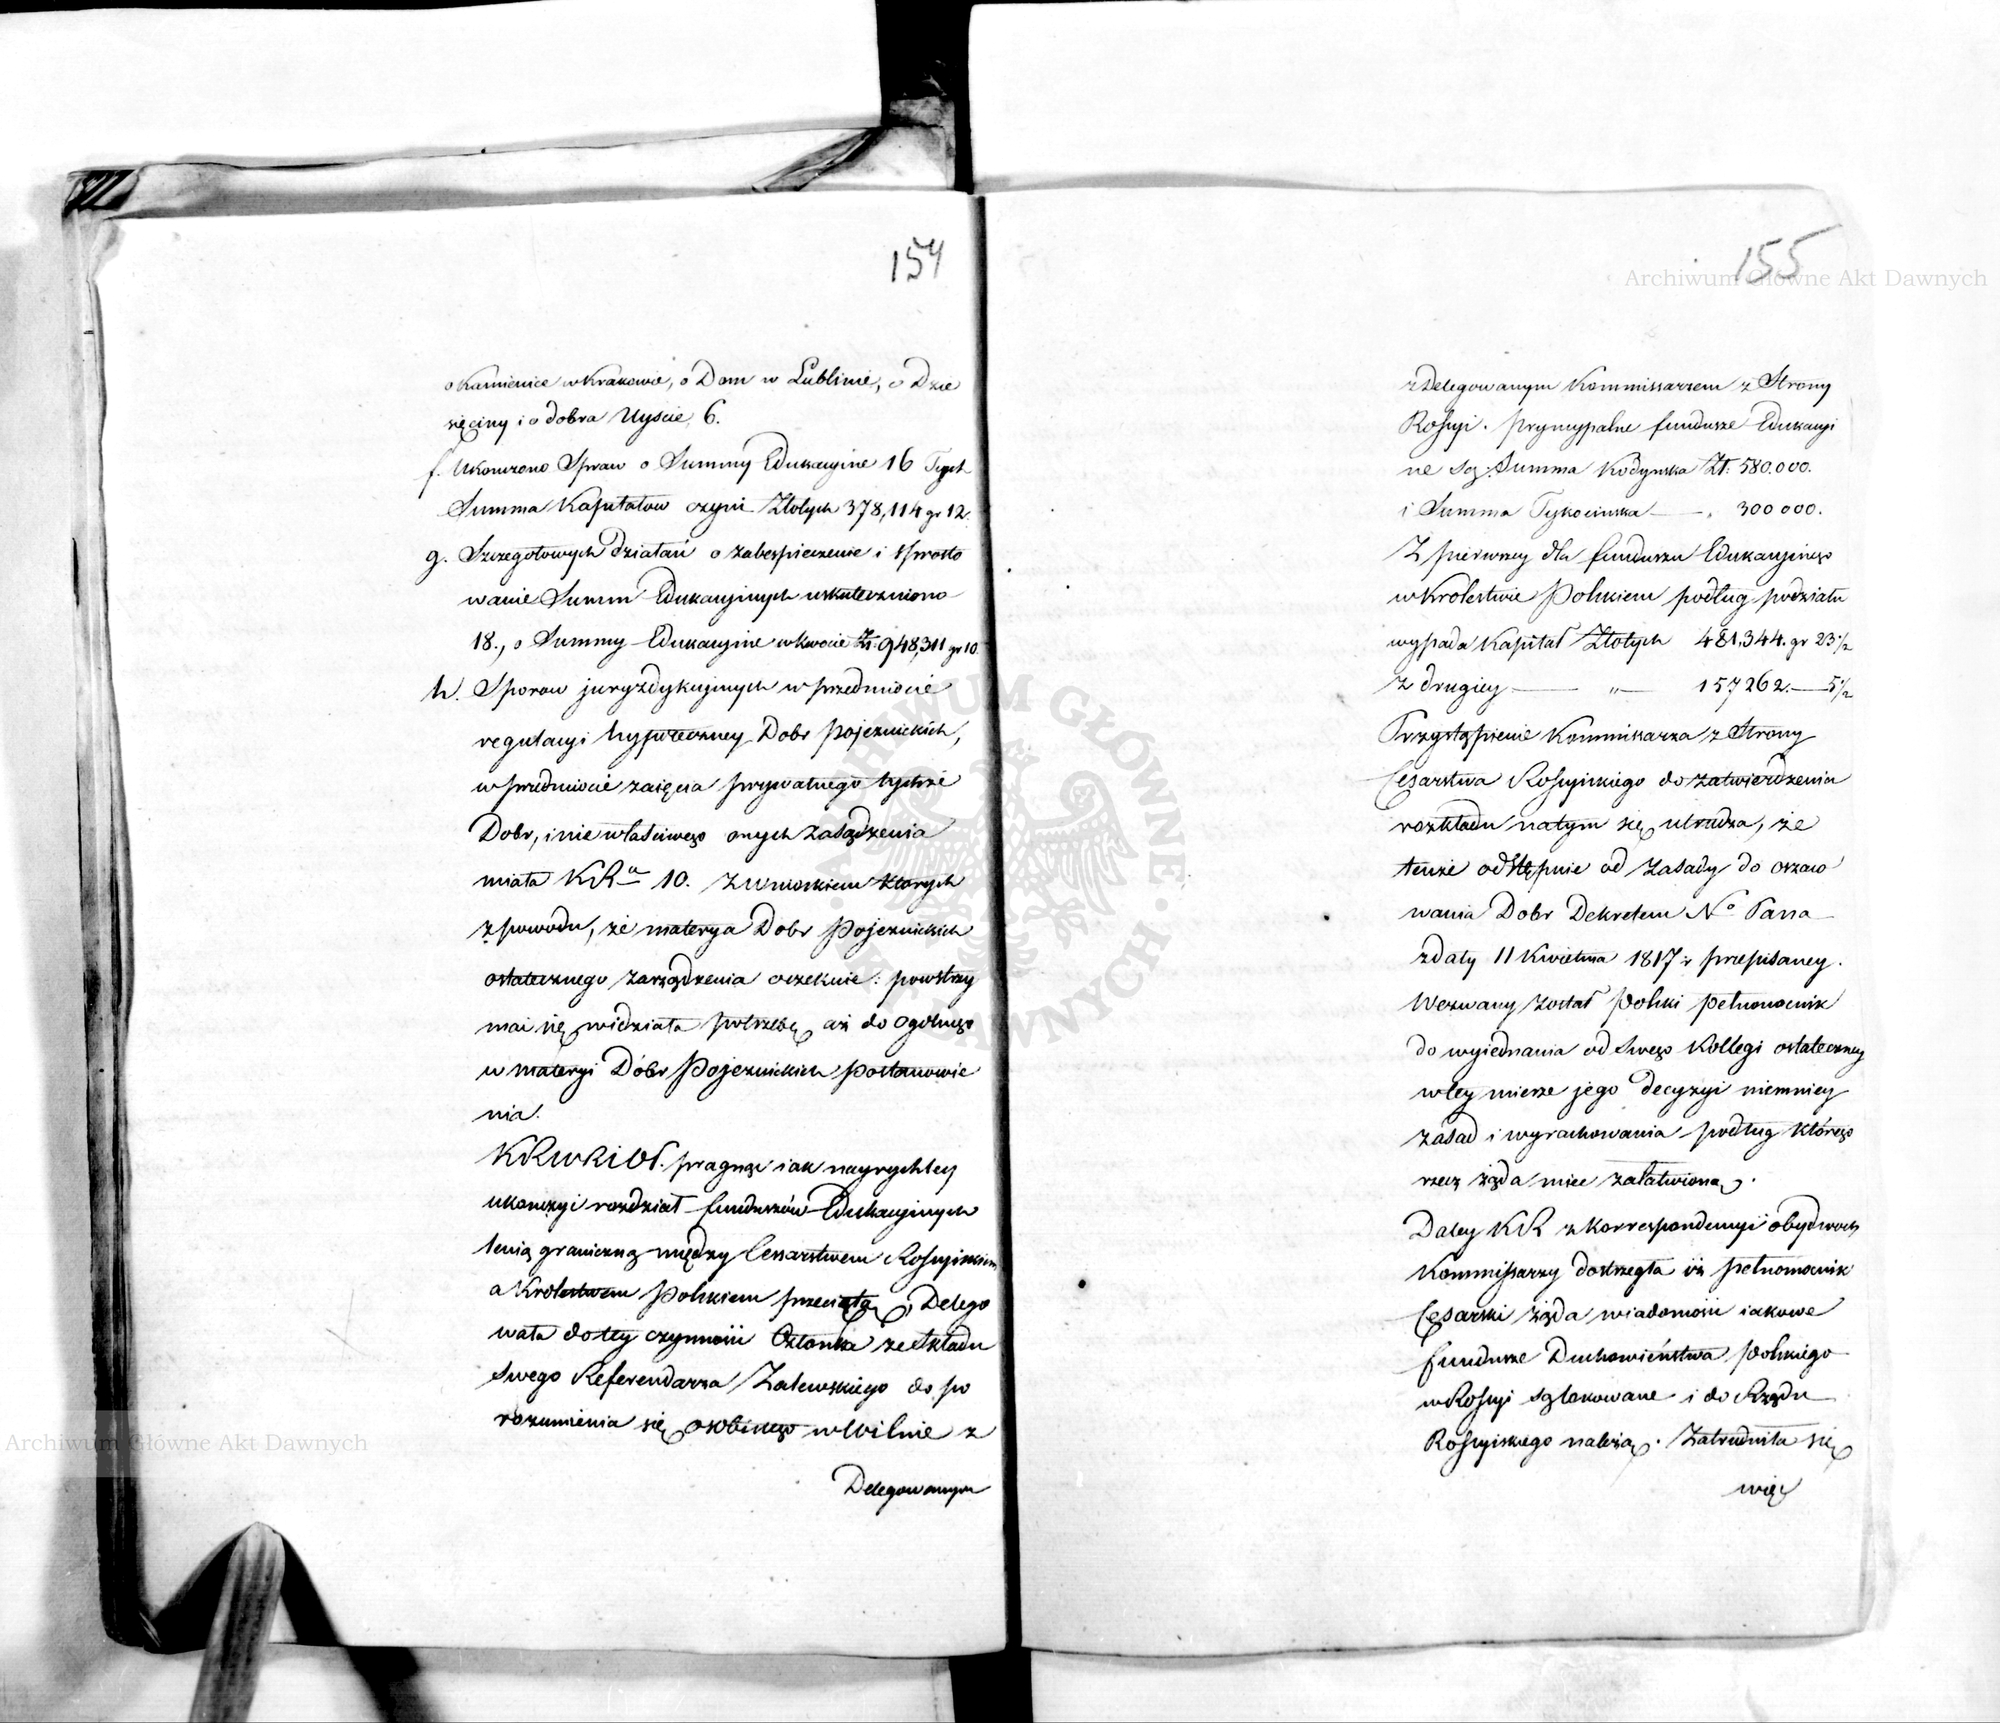 154
o Kamienice w Krakowie, o Dom w Lublinie, o Dzie
sięciny i o dobra Uyście, 6.
f. Ukonczono Spraw o Summy Edukacyine 16 Tych
Summa Kapitałow czyni Złotych 378,114 gr 12.
g. Szczegołowych działań o zabespieczenie i sprosto
wanie Summ Edukacyinych uskuteczniono
18., o Summy Edukacyine w kwocie Zł. 948,311 gr 10.
h. Sporow juryzdykcyjnych w przedmiocie
regulacyi hypoteczney Dobr Pojezuickich,
w przedmiocie zaięcia prywatnego tychże
Dobr, i nie właściwego onych zasądzenia
miała KRa 10. z wnioskiem których
z powodu, że materya Dobr Pojezuickich
ostatecznego zarządzenia oczekuie: powstrzy
mać się widziała potrzebę aż do ogólnego
w materyi Dóbr Pojezuickich postanowie
nia.
KRWRiOP. pragnąc iak nayrychley
ukonczyć rozdział funduszów Edukacyinych
lenią graniczną między Cesarstwem Rossyiskiem
a Krolestwem Polskiem przeciętą, Delego
wała do tey czynności Członka ze składu
swego Referendarza Zalewskiego do po
rozumienia się osobistego w Wilnie z
Delegowanym
155
z Delegowanym Kommissarzem z Strony
Rossyi. Pryncypalne fundusze Edukacyi
ne są: Summa Kodyńska Zł: 580.000.
i Summa Tykocinska — „ 300 000.
Z pierwszey dla funduszu Edukacyinego
w Krolestwie Polskiem podług podziału
wypada Kapitał Złotych 481,344. gr 23½
Z drugiey — „ — 157262. — 5½
Przystąpienie Kommissarza z Strony
Cesarstwa Rossyiskiego do zatwierdzenia
rozkładu na tym się utrudza, że
tenże odstępuie od zasady do oszaco
wania Dobr Dekretem No Pana
z daty 11 Kwietnia 1817 r przepisaney.
Wezwany został Polski Pełnomocnik
do wyiednania od swego Kollegi ostateczney
w tey mierze jego decyzyi niemniey
zasad i wyrachowania podług którego
rzecz żąda mieć załatwioną.
Daley KR z korrespondencyi obydwoch
Kommissarzy dostrzegła iż Pełnomocnik
Cesarski żąda wiadomości iakowe
fundusze Duchowieństwa Polskiego
w Rossyi są lokowane i do Rządu
Rossyiskiego należą. Zatrudniła się
więc
Archiwum Główne Akt Dawnych
Archiwum Główne Akt Dawnych
ARCHIWUM GŁÓWNE AKT DAWNYCH